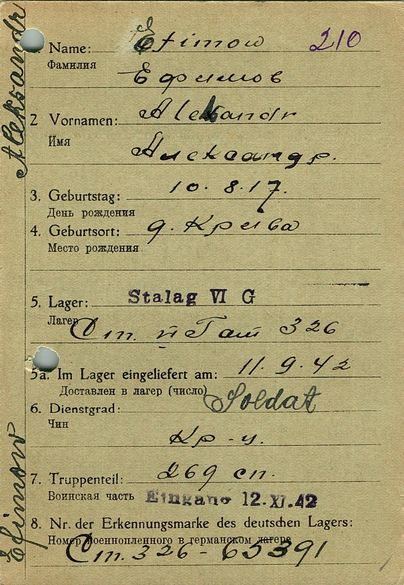 Aleksandr
Efimow
1 Name: Efimow 210
Фамилия
Ефимов
2 Vornamen: Aleksandr
Имя
Александр.
3. Geburtstag: 10.8.17.
День рождения
4. Geburtsort: д. Крива
Место рождения
5. Lager: Stalag VI G
Лагер
326
5a. Im Lager eingeliefert am: 11.9.42
Доставлен в лагер (число)
6. Dienstgrad: Soldat
Чин
Кр-ц.
7. Truppenteil: 269 сп.
Воинская часть Eingang 12.XI.42
8. Nr. der Erkennungsmarke des deutschen Lagers:
Номер военнопленного в германском лагере
Ст. 326 - 65391